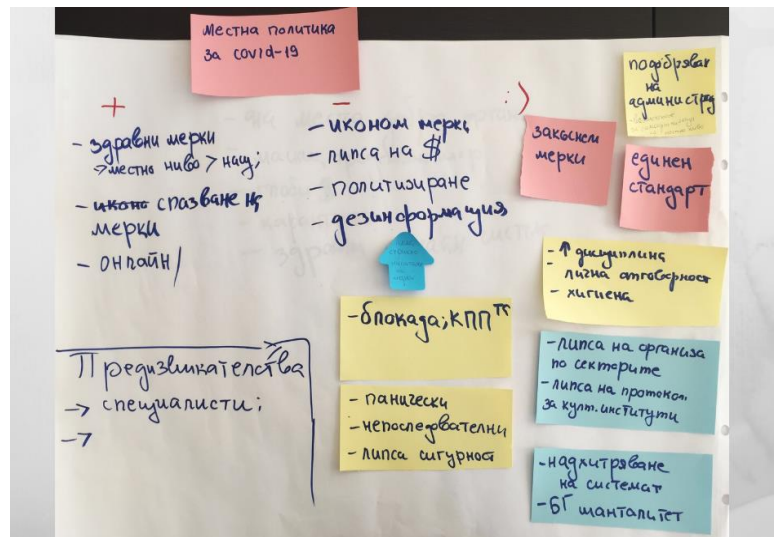 местна политика
за covid-19
+
- здравни мерки
> местно ниво > нац;
- спазване на
мерки
- онлайн/
-
- иконом мерки
- липса на $
- политизиране
- дезинформация
- блокада; КПП
- панически
- непоследователни
- липса сигурност
Предизвикателства
→ специалисти;
→
:)
закъснем
мерки
подобряван
на
администр
единен
стандарт
- ↑ дисциплина
- лична отговорност
- хигиена
- липса на организа
по секторите
- липса на протокол
за култ. институти
- надхитряване
на системат
- БГ манталитет